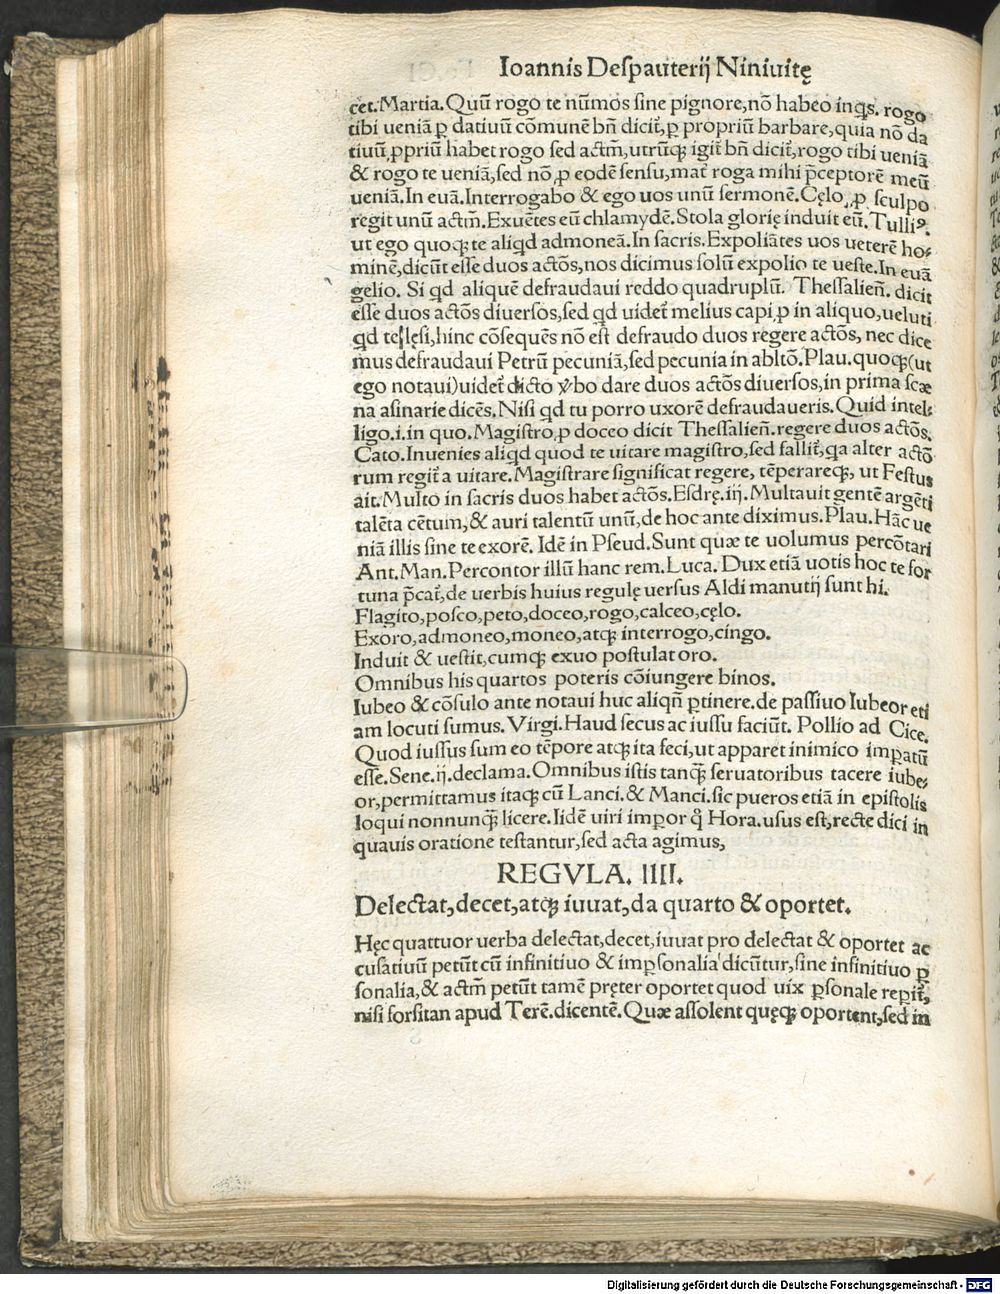 Ioannis Deſpauterij Niniuitę
cet. Martia. Quū rogo te nūmos ſine pignore, nō habeo inqs. rogo
tibi ueniā ꝑ datiuū cōmunē bn̄ dicit̄, ꝑ propriū barbare, quia nō da
tiuū ꝓpriū habet rogo ſed actm̄, utrūqꝫ igit̄ bn̄ dicit̄, rogo tibi ueniā
& rogo te ueniā, ſed nō ꝓ eodē ſenſu, mat̄ roga mihi p̄ceptorē meū
ueniā. In euā. Interrogabo & ego uos unū ſermonē. Cęlo, ꝓ ſculpo
regit unū actm̄. Exuētes eū chlamydē. Stola glorię induit eū. Tulliꝰ.
ut ego quoqꝫ te aliqd admoneā. In ſacris. Expoliātes uos ueterē ho⸗
minē, dicūt eſſe duos actōs, nos dicimus ſolū expolio te ueſte. In euā
gelio. Si qd aliquē defraudaui reddo quadruplū. Theſſalien̄. dicit
eſſe duos actōs diuerſos, ſed qd uidet̄ melius capi ꝓ in aliquo, ueluti
qd te lęſi, hinc cōſequēs nō eſt defraudo duos regere actōs, nec dice
mus defraudaui Petrū pecuniā, ſed pecunia in abltō. Plau. quoqꝫ (ut
ego notaui) uidet̄ dicto ỽbo dare duos actōs diuerſos, in prima ſcæ
na aſinarie dicēs. Niſi qd tu porro uxorē defraudaueris. Quid intel⸗
ligo .i. in quo. Magiſtro ꝓ doceo dicit Theſſalien̄. regere duos actōs.
Cato. Inuenies aliqd quod te uitare magiſtro, ſed fallit̄, qa alter actō
rum regit̄ a uitare. Magiſtrare ſignificat regere, tēperareqꝫ, ut Feſtus
ait. Multo in ſacris duos habet actōs. Eſdrę. iij. Multauit gentē argēti
talēta cētum, & auri talentū unū, de hoc ante diximus. Plau. Hāc ue
niā illis ſine te exorē. Idē in Pſeud. Sunt quæ te uolumus percōtari
Ant. Man. Percontor illū hanc rem. Luca. Dux etiā uotis hoc te for
tuna p̄cat̄, de uerbis huius regulę uerſus Aldi manutij ſunt hi.
Flagito, poſco, peto, doceo, rogo, calceo, cęlo.
Exoro, admoneo, moneo, atqꝫ interrogo, cingo.
Induit & ueſtit, cumqꝫ exuo poſtulat oro.
Omnibus his quartos poteris cōiungere binos.
Iubeo & cōſulo ante notaui huc aliqn̄ ꝑtinere. de paſſiuo Iubeor eti
am locuti ſumus. Virgi. Haud ſecus ac iuſſu faciūt. Pollio ad Cice.
Quod iuſſus ſum eo tēpore atqꝫ ita feci, ut apparet inimico imꝑatū
eſſe. Sene. ij. declama. Omnibus iſtis tanqꝫ̄ ſeruatoribus tacere iube⸗
or, permittamus itaqꝫ cū Lanci. & Manci. ſic pueros etiā in epiſtolis
loqui nonnunqꝫ̄ licere. Iidē uiri imꝑor q̊ Hora. uſus eſt, recte dici in
quauis oratione teſtantur, ſed acta agimus,
REGVLA. IIII.
Delectat, decet, atqꝫ iuuat, da quarto & oportet.
Hęc quattuor uerba delectat, decet, iuuat pro delectat & oportet ac
cuſatiuū petūt cū infinitiuo & imꝑſonalia dicūtur, ſine infinitiuo ꝑ
ſonalia, & actm̄ petūt tamē pręter oportet quod uix ꝑſonale reꝑit̄,
niſi forſitan apud Terē. dicentē. Quæ aſſolent quęqꝫ oportent, ſed in
Digitalisierung gefördert durch die Deutsche Forschungsgemeinschaft - DFG